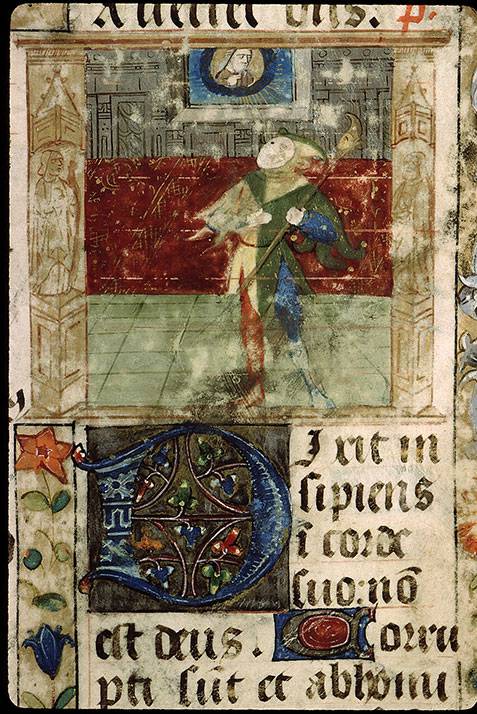 bus. p.
Dixit in
sipiens
ī corde
suo: nō
est deus. Corru
pti sūt et abhomi